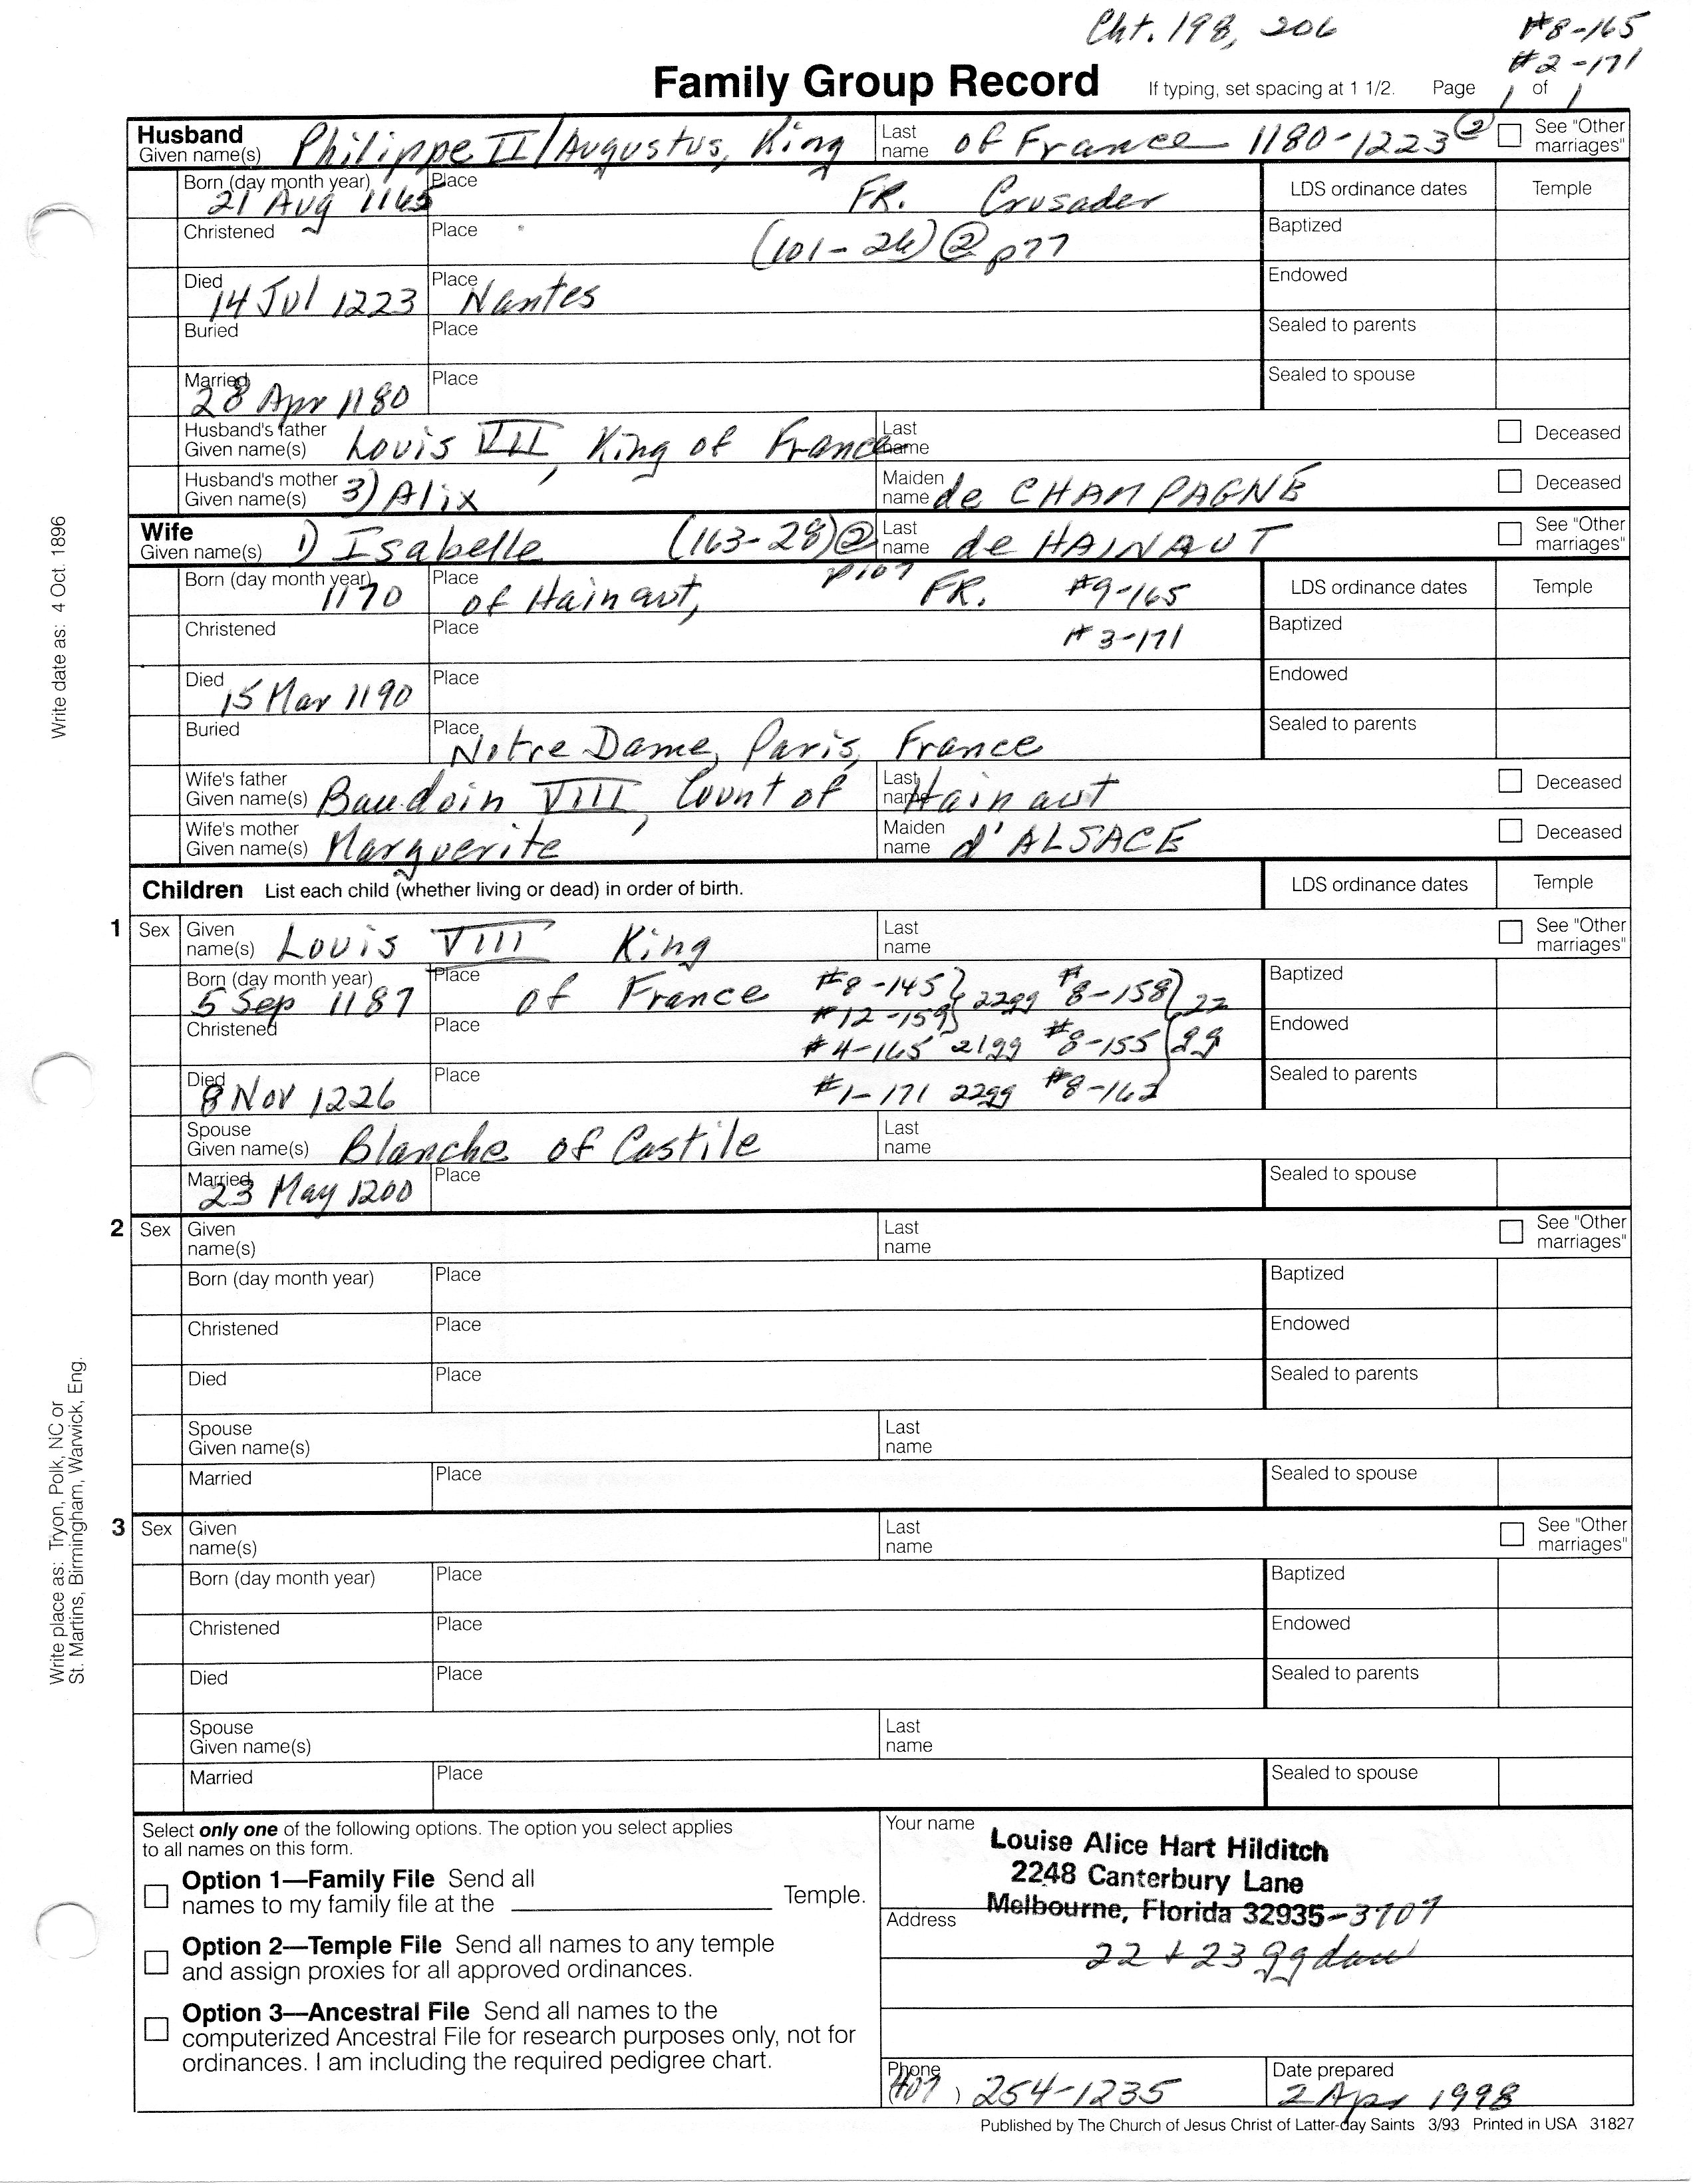 Cht. 198, 206
#8-165
#2-171
Family Group Record If typing, set spacing at 1 1/2. Page 1 of 1
Husband
Given name(s) Philippe II/Augustus, King Last name of France 1180-1223 ② See "Other marriages"
Born (day month year) 21 Aug 1165 Place FR. Crusader LDS ordinance dates Temple
Christened Place (101-26) ② p77 Baptized
Died 14 Jul 1223 Place Nantes Endowed
Buried Place Sealed to parents
Married 28 Apr 1180 Place Sealed to spouse
Husband's father Given name(s) Louis VII, King of France Last name Deceased
Husband's mother Given name(s) 3) Alix Maiden name de CHAMPAGNE Deceased
Wife
Given name(s) 1) Isabelle (163-28) ② p107 Last name de HAINAUT See "Other marriages"
Born (day month year) 1170 Place of Hainaut, FR. #9-165 LDS ordinance dates Temple
Christened Place #3-171 Baptized
Died 15 Mar 1190 Place Endowed
Buried Place Notre Dame, Paris, France Sealed to parents
Wife's father Given name(s) Baudoin VIII, Count of Last name Hainaut Deceased
Wife's mother Given name(s) Marguerite Maiden name d'ALSACE Deceased
Children List each child (whether living or dead) in order of birth. LDS ordinance dates Temple
1 Sex Given name(s) Louis VIII King Last name See "Other marriages"
Born (day month year) 5 Sep 1187 Place of France #8-145 } 22gg #8-158 } 22 Baptized
Christened Place #12-159 #4-165 21gg #8-155 gg Endowed
Died 8 Nov 1226 Place #1-171 22gg #8-162 Sealed to parents
Spouse Given name(s) Blanche of Castile Last name
Married 23 May 1200 Place Sealed to spouse
2 Sex Given name(s) Last name See "Other marriages"
Born (day month year) Place Baptized
Christened Place Endowed
Died Place Sealed to parents
Spouse Given name(s) Last name
Married Place Sealed to spouse
3 Sex Given name(s) Last name See "Other marriages"
Born (day month year) Place Baptized
Christened Place Endowed
Died Place Sealed to parents
Spouse Given name(s) Last name
Married Place Sealed to spouse
Select only one of the following options. The option you select applies
to all names on this form.
Option 1—Family File Send all
names to my family file at the ____ Temple.
Option 2—Temple File Send all names to any temple
and assign proxies for all approved ordinances.
Option 3—Ancestral File Send all names to the
computerized Ancestral File for research purposes only, not for
ordinances. I am including the required pedigree chart.
Your name Louise Alice Hart Hilditch
2248 Canterbury Lane
Address Melbourne, Florida 32935-3707
22 + 23 ggdau
Phone (407) 254-1235 Date prepared 2 Apr 1998
Published by The Church of Jesus Christ of Latter-day Saints 3/93 Printed in USA 31827
Write date as: 4 Oct. 1896
Write place as: Tryon, Polk, NC or
St. Martins, Birmingham, Warwick, Eng.